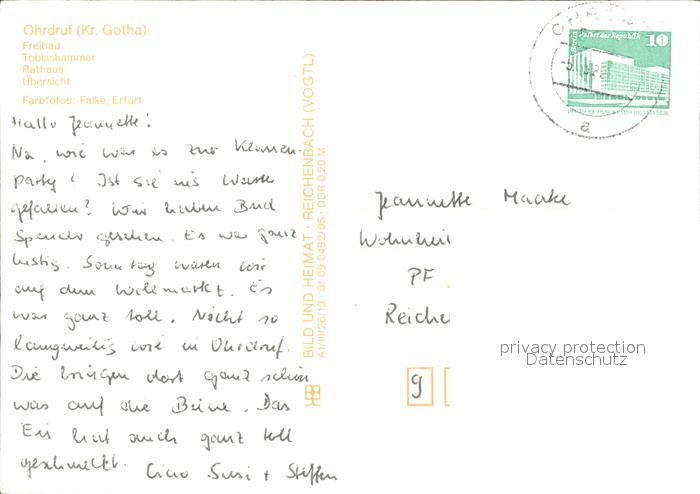 Ohrdruf (Kr. Gotha)
Freibad
Tobiashammer
Rathaus
Übersicht
Farbfotos: Falke, Erfurt
Hallo Jeannette!
Na, wie war es zur Klassen-
party? Ist sie ins Wasser
gefallen? Wir haben Bud
Spencer gesehen. Es war ganz
lustig. Sonntag waren wir
auf dem Wollmarkt. Es
war ganz toll. Nicht so
langweilig wie in Ohrdruf.
Die bringen dort ganz schön
was auf die Beine. Das
Eis hat auch ganz toll
geschmeckt. Ciao Susi + Steffen
BILD UND HEIMAT · REICHENBACH (VOGTL)
A1/III/26/13 · 01 09 0492/05 · DDR 0,20 M
Berlin, Palast der Republik
10
DEUTSCHE DEMOKRATISCHE REPUBLIK
a
Jeannette Maake
Wohnhei
PF
Reiche
9
privacy protection
Datenschutz